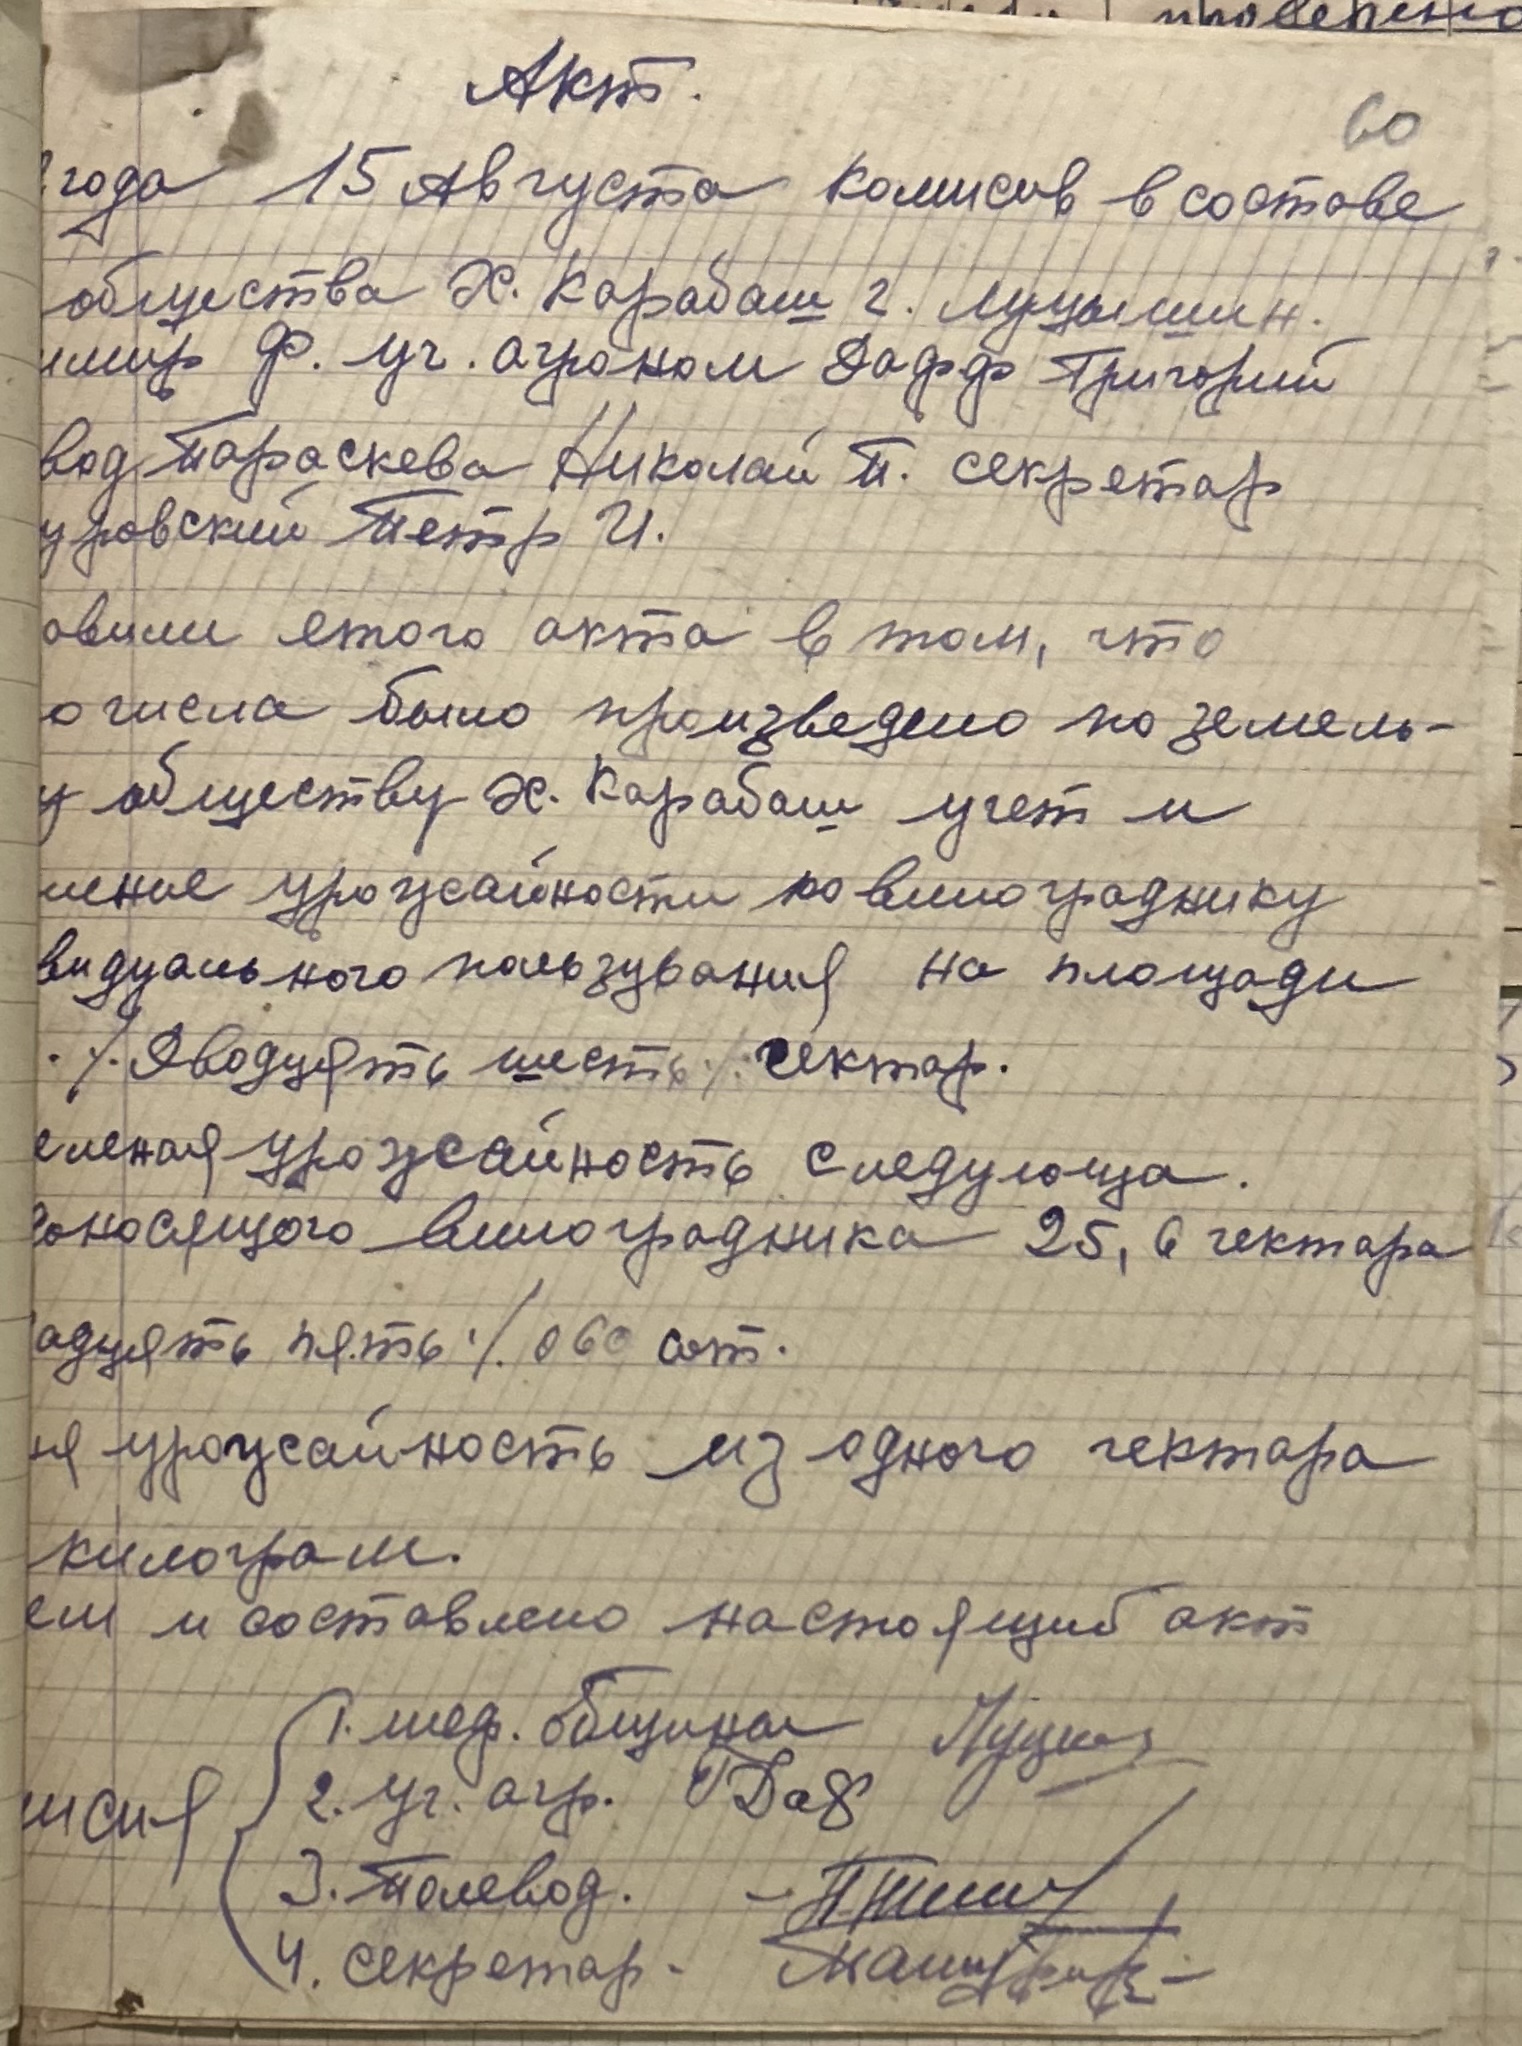 Акт.
60
года 15 Августа комисив в составе
общества Х. Карабаш г. Луцышин.
имир Ф. уч. агроном Дафф Григорий
вод Параскева Николай П. секретар
уровский Петр И.
овили етого акта в том, что
о числа было произведено по земель-
у обществу Х. Карабаш учет и
ление урожайности по винограднику
видуального пользувания на площади
. ./. Двадцять шесть ./. гектар.
еленая урожайность следующа.
доносящого виноградника 25,6 гектара
адцять пять ./. 060 сот.
ня урожайность из одного гектара
килограм.
ем и составлено настоящив акт
1. шеф. общины Луцы
исия 2. уч. агр. Даф
3. Полевод.
4. секретар -